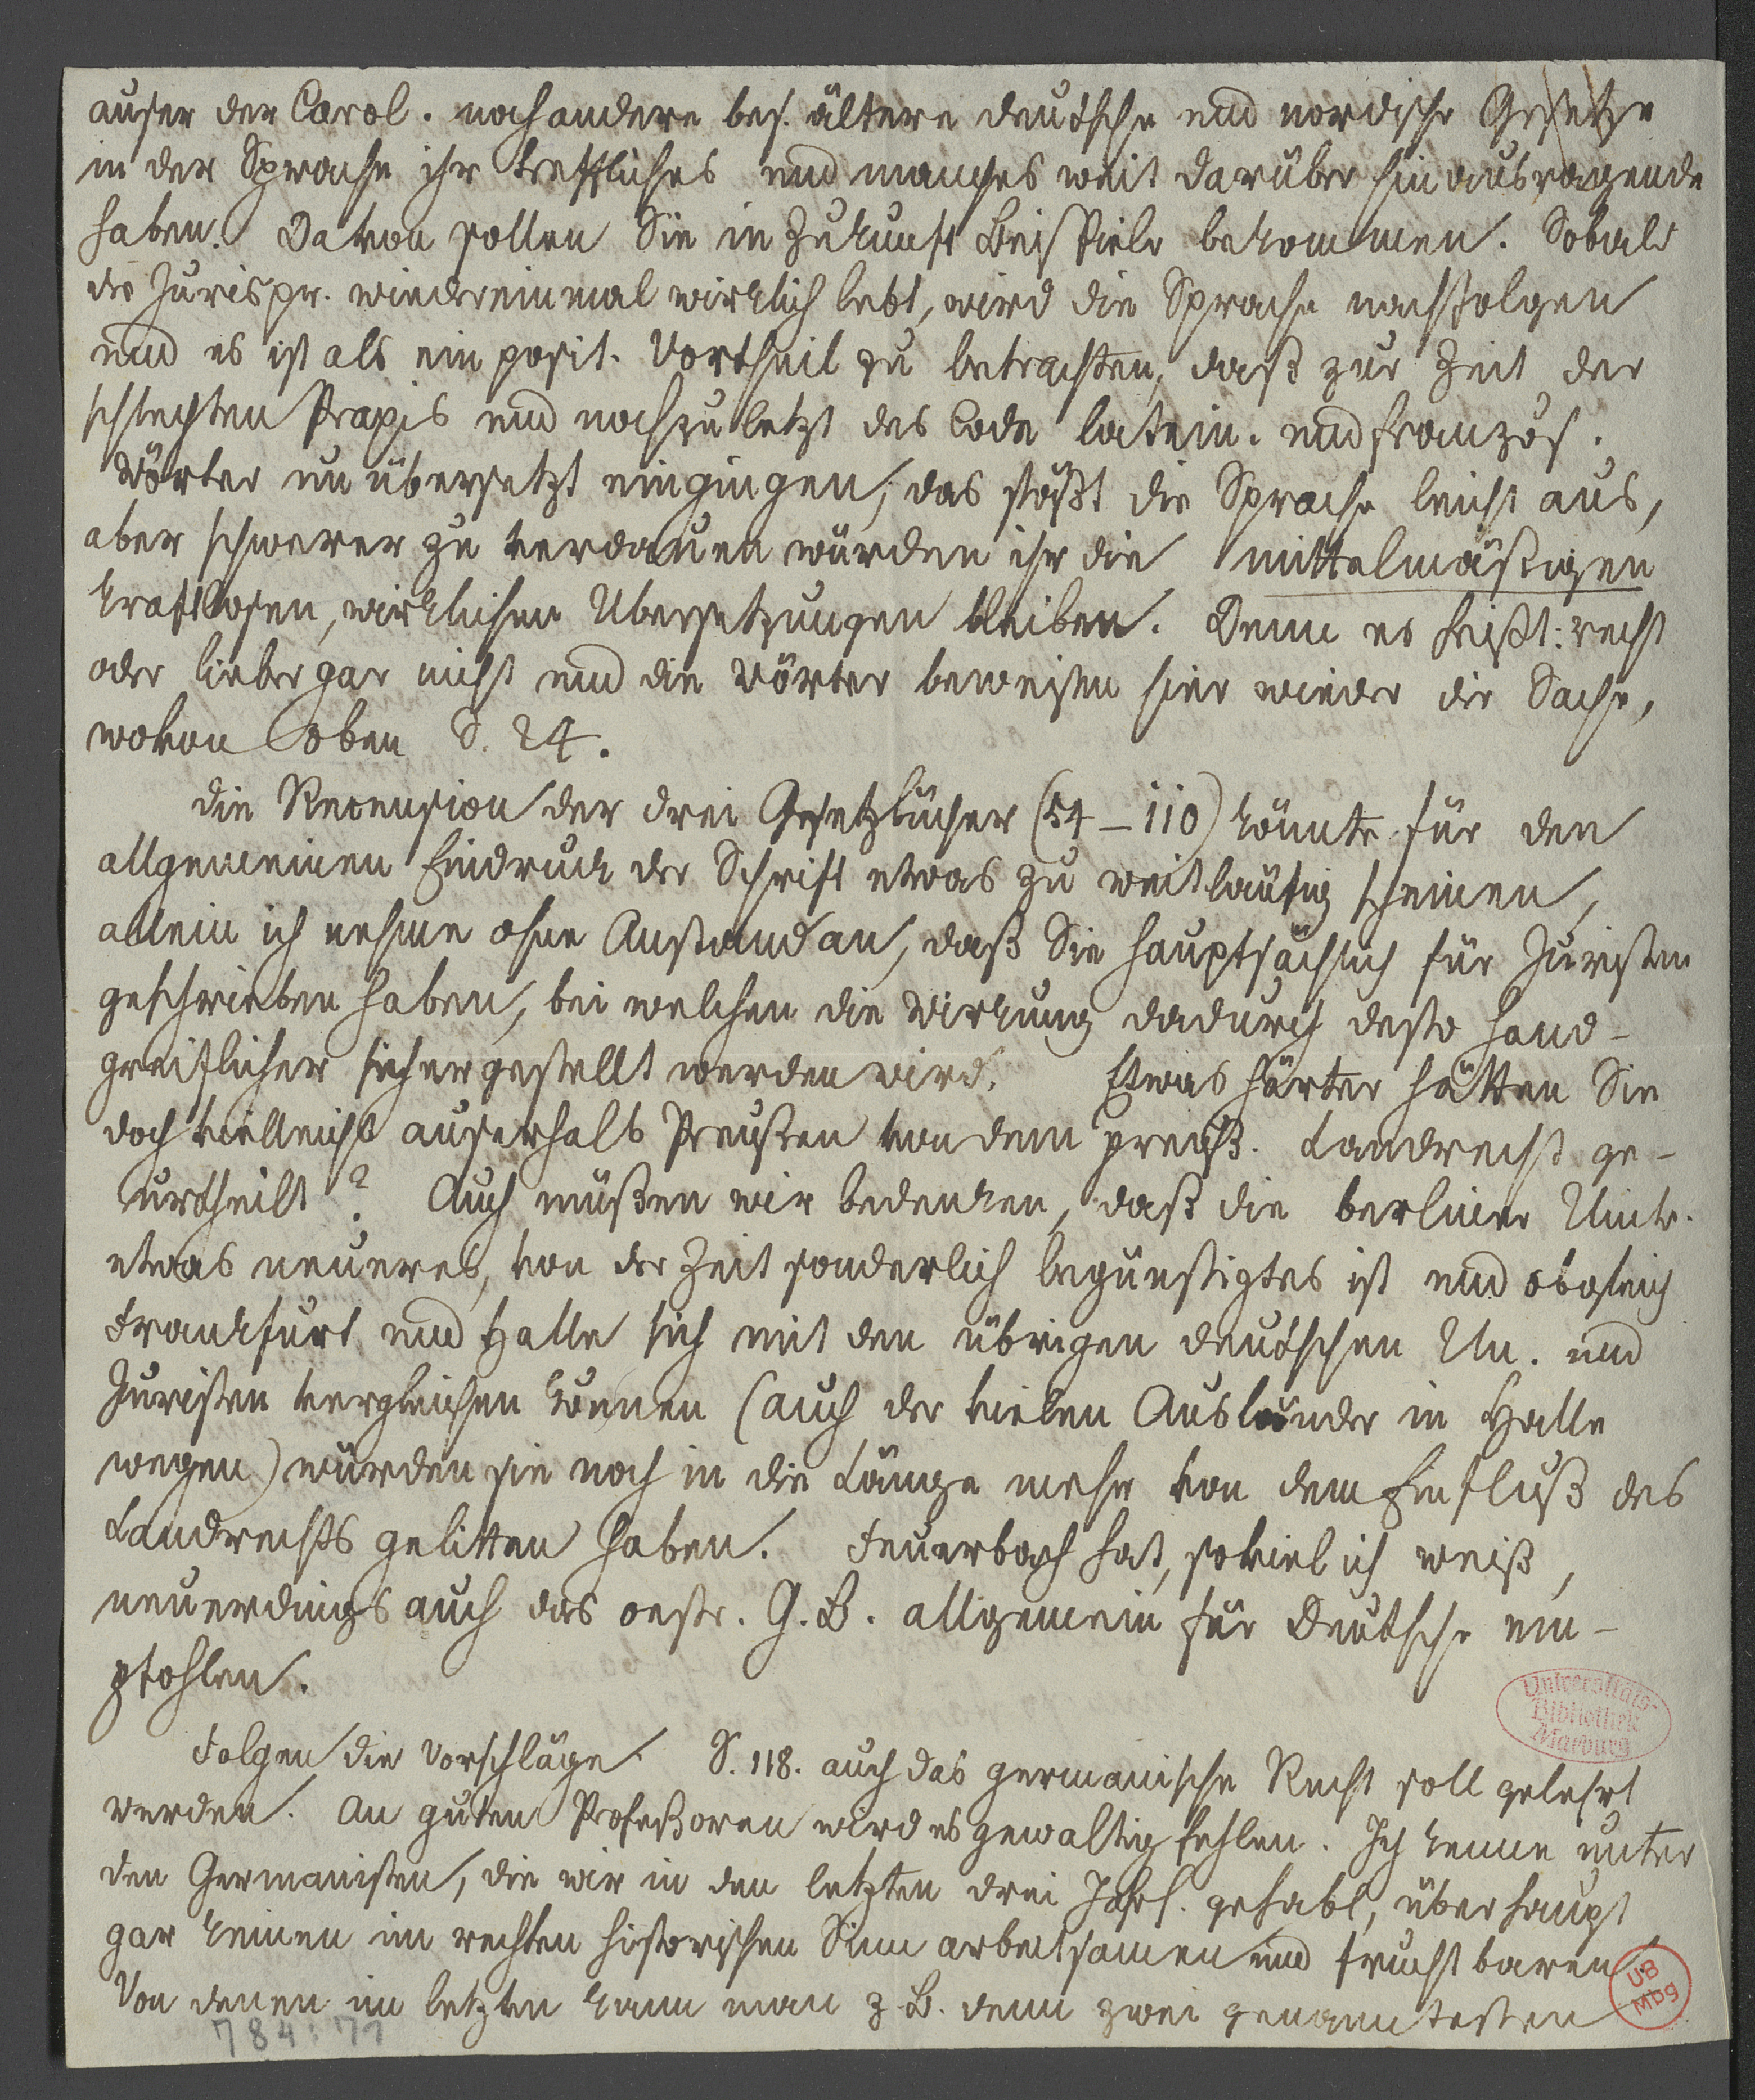 auser der Carol. noch andere bes. ältere deutsche und nordische Gesetze
in der Sprache ihr treffliches und manches weit darüber hinausragende
haben. Davon sollen Sie in Zukunft Beispiele bekommen. Sobald
die Jurispr. wiedereinmal wirklich lebt, wird die Sprache nachfolgen
und es ist als ein posit. Vortheil zu betrachten, daß zur Zeit der
schlechten Praxis und noch zuletzt des Code latein. und französ.
Wörter unübersetzt eingingen; das stößt die Sprache leicht aus,
aber schwerer zu verdauen würden ihr die mittelmäßigen
kraftlosen, wirklichen Übersetzungen bleiben. Denn es heißt: recht
oder lieber gar nicht und die Wörter beweisen hier wieder die Sache,
wovon oben S. 24.
Die Recension der drei Gesetzbücher (54-110) könnte für den
allgemeinen Eindruck der Schrift etwas zu weitläufig scheinen,
allein ich nehme ohne Anstand an, daß Sie hauptsächlich für Juristen
geschrieben haben, bei welchen die Wirkung dadurch desto hand-
greiflicher sichergestellt werden wird. Etwas härter hätten Sie
doch vielleicht auserhalb Preußen von dem preuß. Landrecht ge-
urtheilt? Auch müßen wir bedenken, daß die berliner Univ.
etwas neueres, von der Zeit sonderlich begünstigtes ist und obgleich
Frankfurt und Halle sich mit den übrigen deutschen Un. und
Juristen vergleichen können (auch der vielen Ausländer in Halle
wegen) würden sie noch in die Länge mehr von dem Einfluß des
Landrechts gelitten haben. Feuerbach hat, soviel ich weiß,
neuerdings auch das oestr. G. B. allgemein für Deutsche em-
pfohlen.
Folgen die Vorschläge. S. 118. auch das germanische Recht soll gelehrt
werden. An guten Profeßoren wird es gewaltig fehlen. Ich kenne unter
den Germanisten, die wir in den letzten drei Jahrh. gehabt, überhaupt
gar keinen im rechten historischen Sinn arbeitsamen und fruchtbaren.
Von denen im letzten kann man z. B. denn zwei genanntesten
Universitäts-
Bibliothek
Marburg
UB
Mbg
784:71